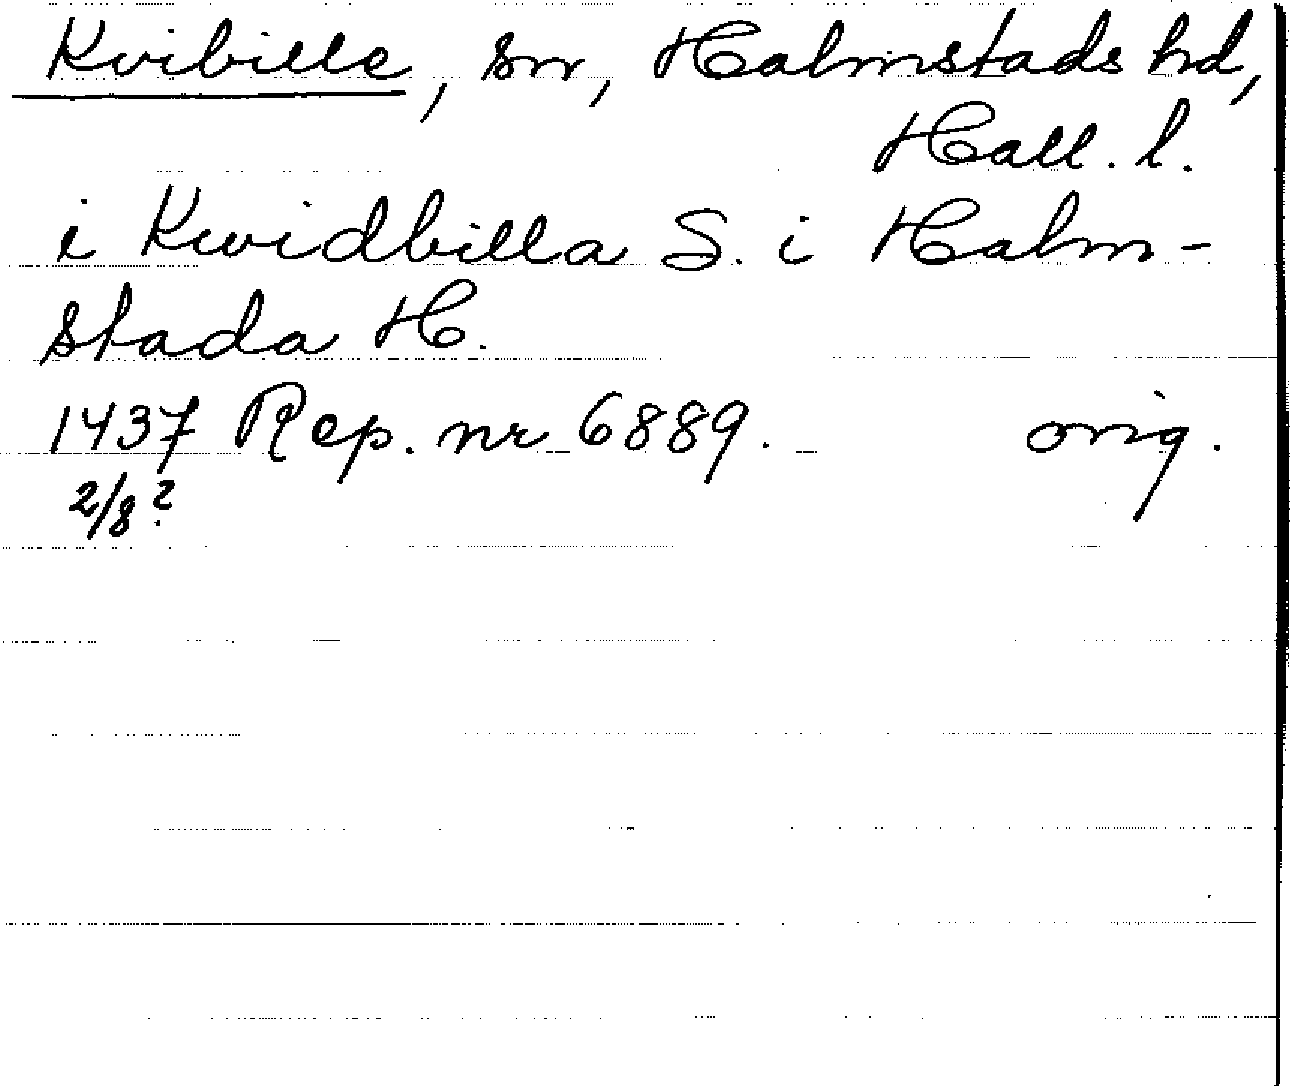 Kvibille, sn, Halmstads hd,
Hall. l.
i Kwidbilla S. i Halm-
stada H.
1437 Rep. nr 6889. orig.
2/8?